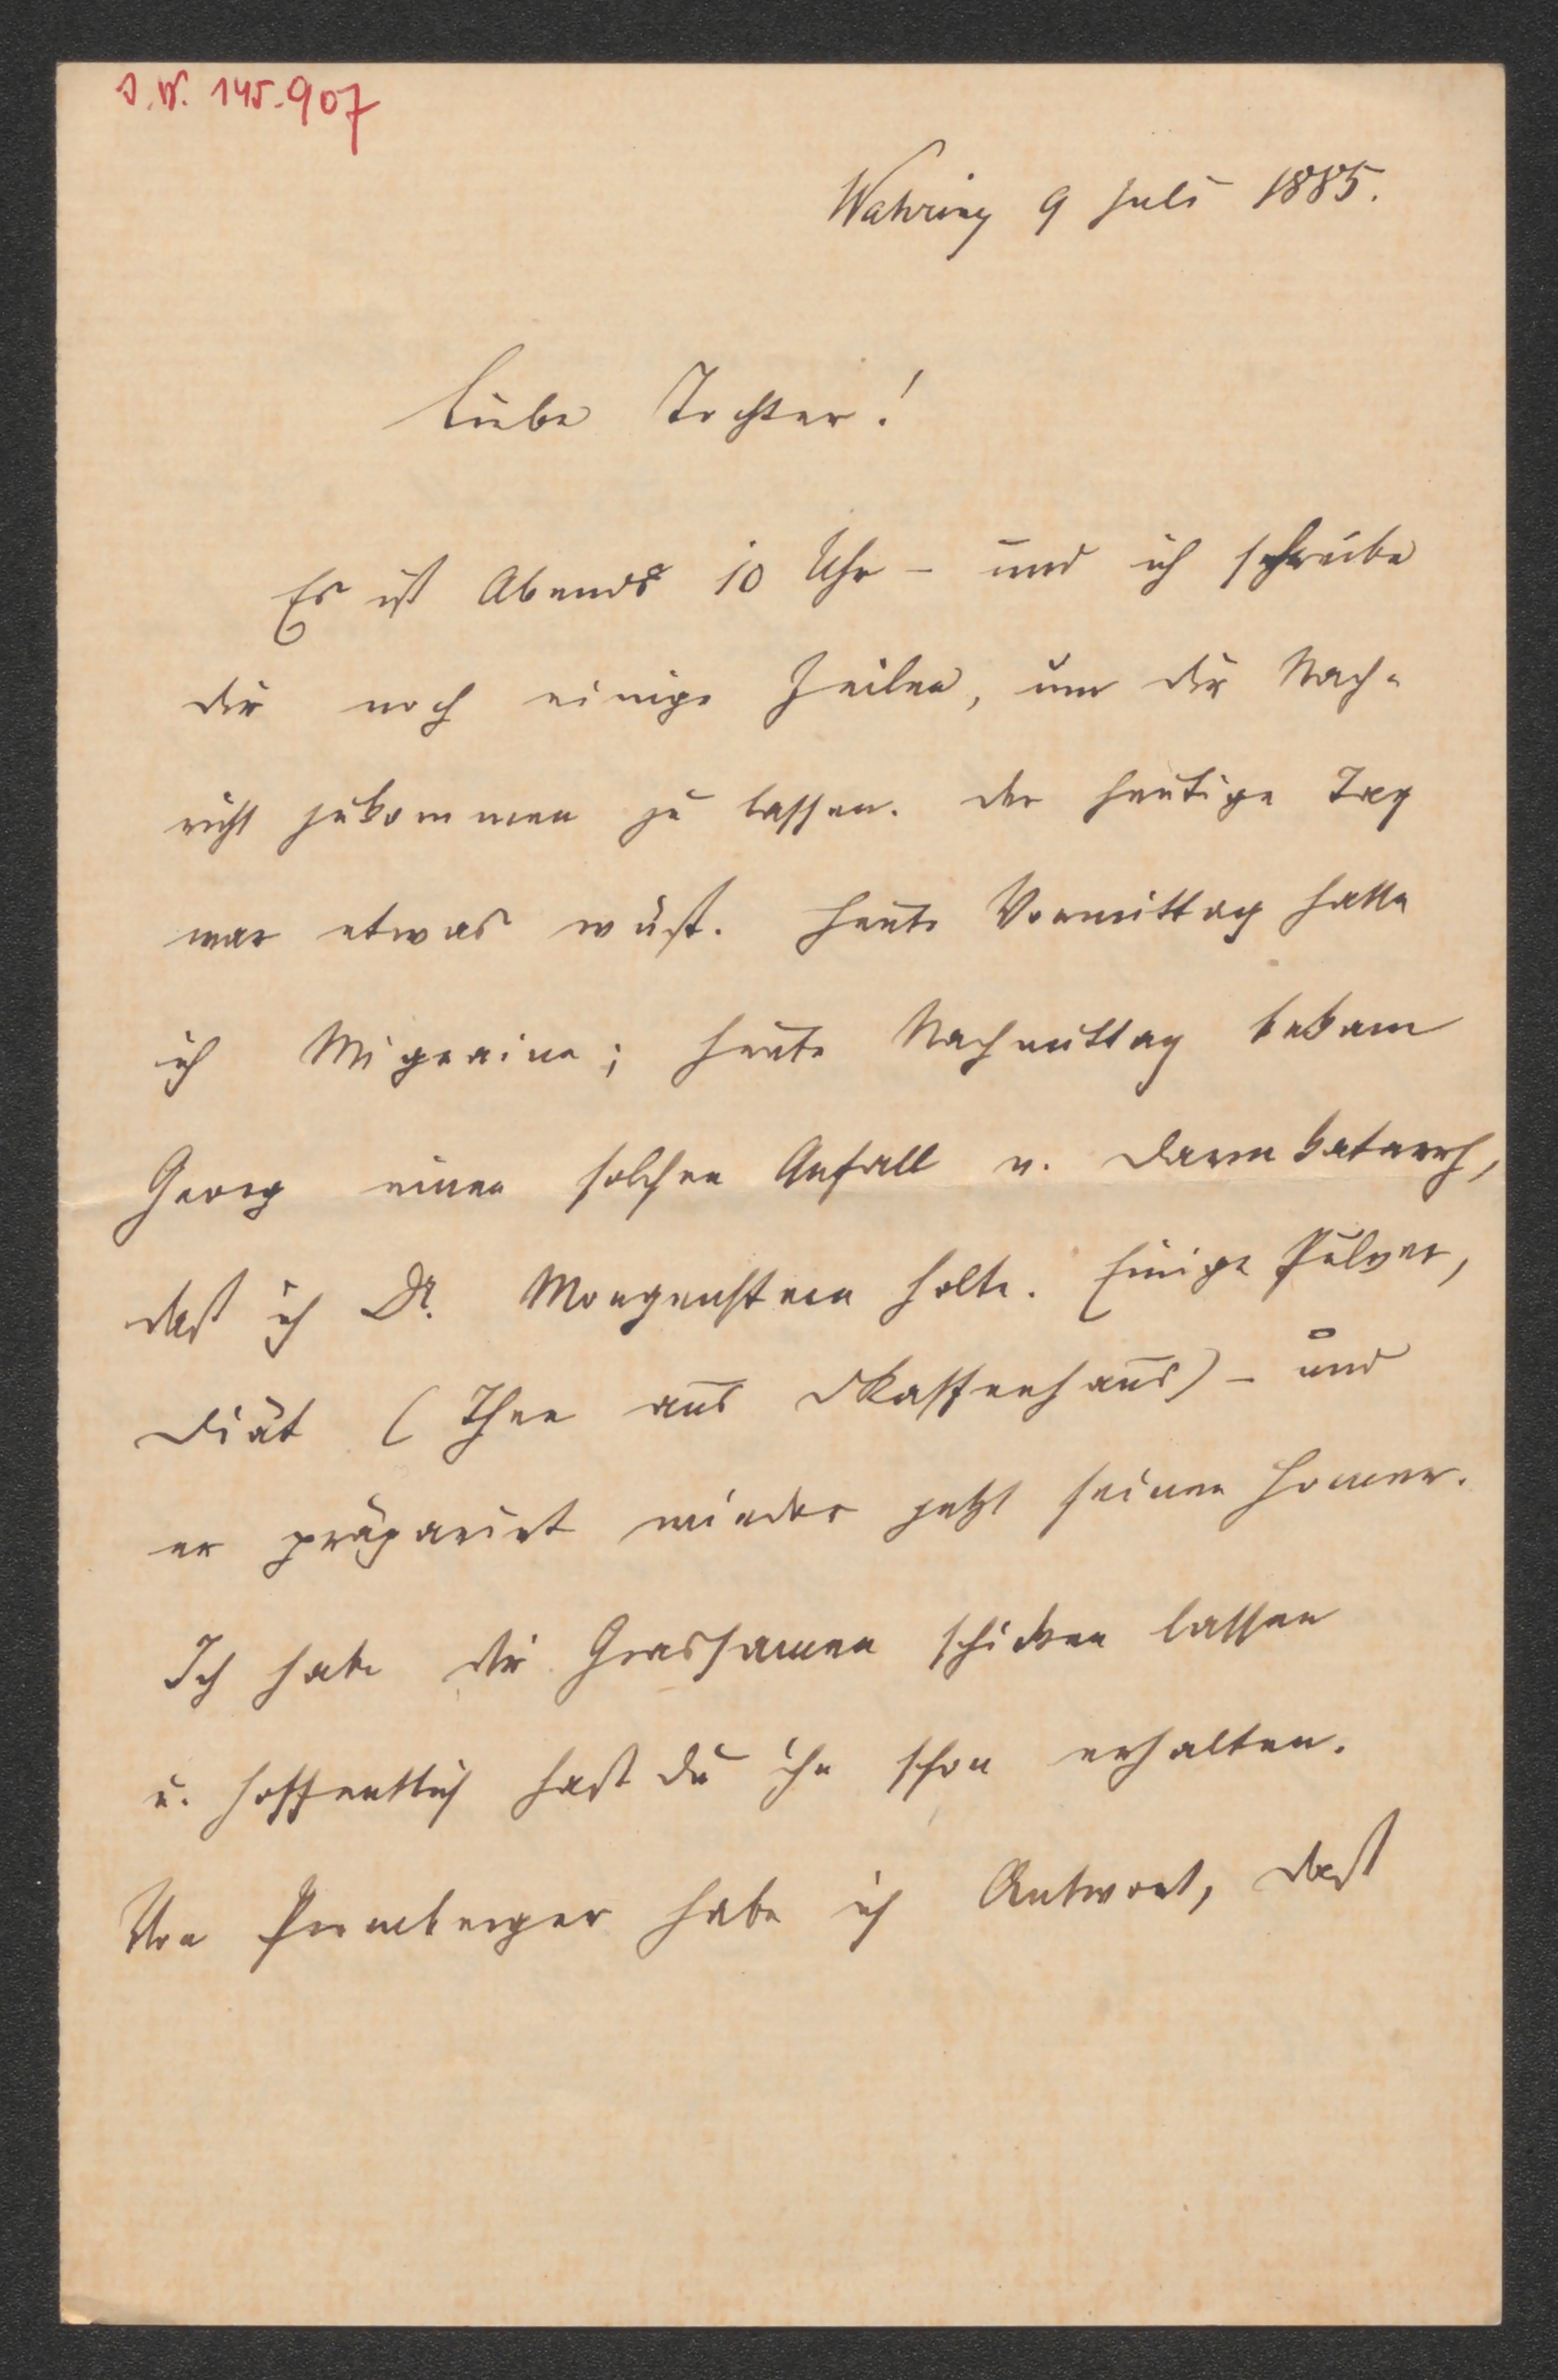 I.N. 145.907
Währing 9 Juli 1885.
Liebe Tochter!
Es ist Abends 10 Uhr – und ich schreibe
dir noch einige Zeilen, um dir Nach-
richt zukommen zu lassen. Der heutige Tag
war etwas wüst. Heute Vormittag hatte
ich Migraine; heute Nachmittag bekam
Georg einen solchen Anfall v. Darmkatarrh,
daß ich Dr. Morgenstern holte. Einige Pulver,
Diät (Thee aus Kaffeehaus) – und
er präparirt wieder jetzt seinen Homer.
Ich habe dir Grassamen schicken lassen
u. hoffentlich hast du ihn schon erhalten.
Von habe ich Antwort, daß